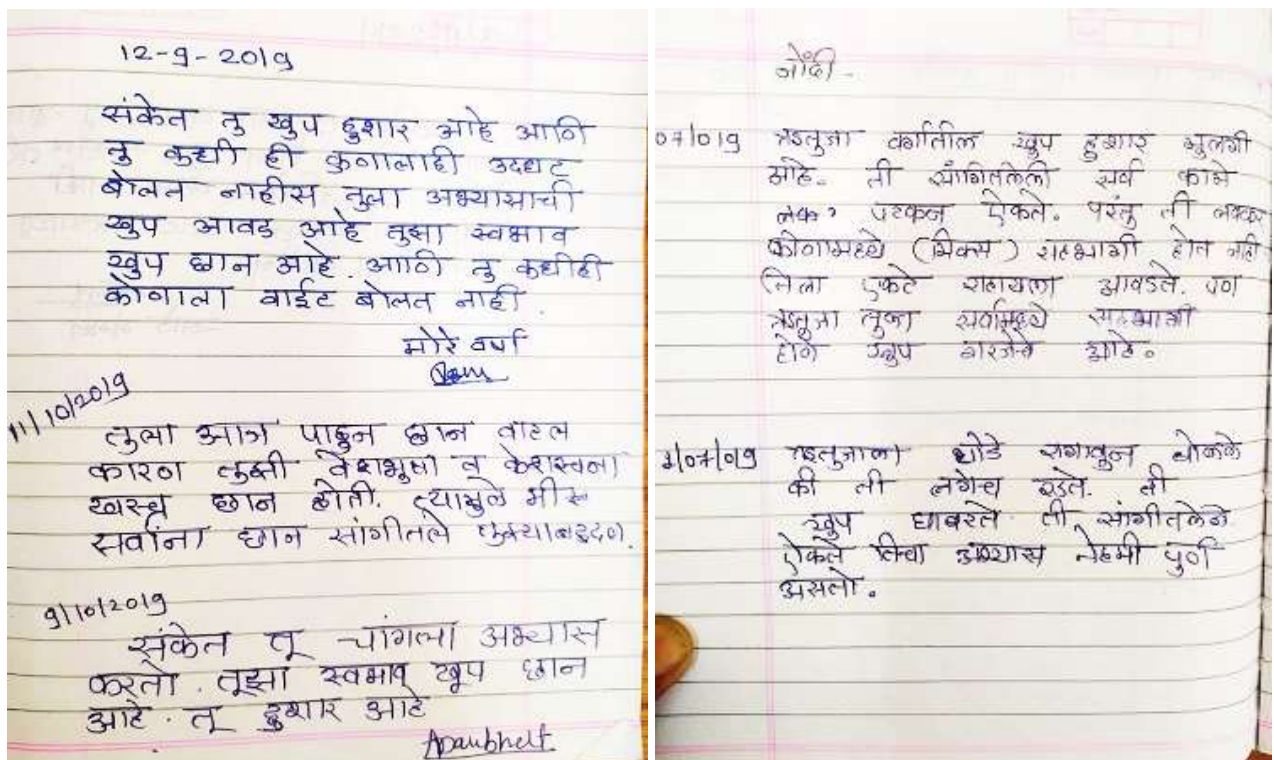 12-9-2019
संकेत तु खुप हुशार आहे आणि
तु कधी ही कुणालाही उदधट
बोलत नाहीस तुला अभ्यासाची
खुप आवड आहे तुझा स्वभाव
खुप छान आहे. आणि तु कधीही
कोणाला वाईट बोलत नाही.
मोरे वर्षा
11/10/2019
तुला आज पाहुन छान वाटल
कारण तुझी वेशभुषा व केशरचना
खुप छान होती. त्यामुळे मी
सर्वांना छान सांगीतले तुझ्याबद्दल.
9/10/2019
संकेत तू चांगला अभ्यास
करतो. तूझा स्वभाव खूप छान
आहे. तू हुशार आहे
नोंदी -
07/019 ऋतुजा वर्गातील खुप हुशार मुलगी
आहे. ती सांगितलेली सर्व कामे
पटकन ऐकते. परंतु ती लवकर
कोणामध्ये (मिक्स) सहभागी होत नाही
तिला एकटे रहायला आवडते. पण
ऋतुजा तुझा सर्वांमध्ये सहभागी
होणे खुप गरजेचे आहे.
/07/019 ऋतुजाला थोडे रागावुन बोलले
की ती लगेच रडते. ती
खुप घाबरते ती सांगीतलेले
ऐकते तिचा अभ्यास नेहमी पुर्ण
असतो.